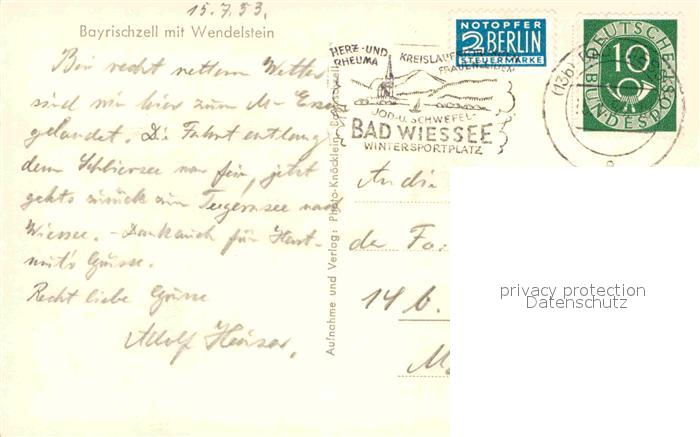 15.7.53.
Bayrischzell mit Wendelstein
Bei recht nettem Wetter
sind wir hier zum M-Essen
gelandet. Die Fahrt entlang
dem Schliersee war fein, jetzt
gehts zurück zum Tegernsee nach
Wiessee. - Dank auch für Hart-
mut's Grüsse.
Recht liebe Grüsse
Adolf
Aufnahme und Verlag: Photo-Knöcklein
NOTOPFER
2 BERLIN
STEUERMARKE
HERZ- UND
RHEUMA
KREISLAUF
FRAUENLEIDEN
JOD-U. SCHWEFEL-
BAD WIESSEE
WINTERSPORTPLATZ
(13b)
DEUTSCHE
10
BUNDESPOST
An die
der Fa.
14 b.
privacy protection
Datenschutz